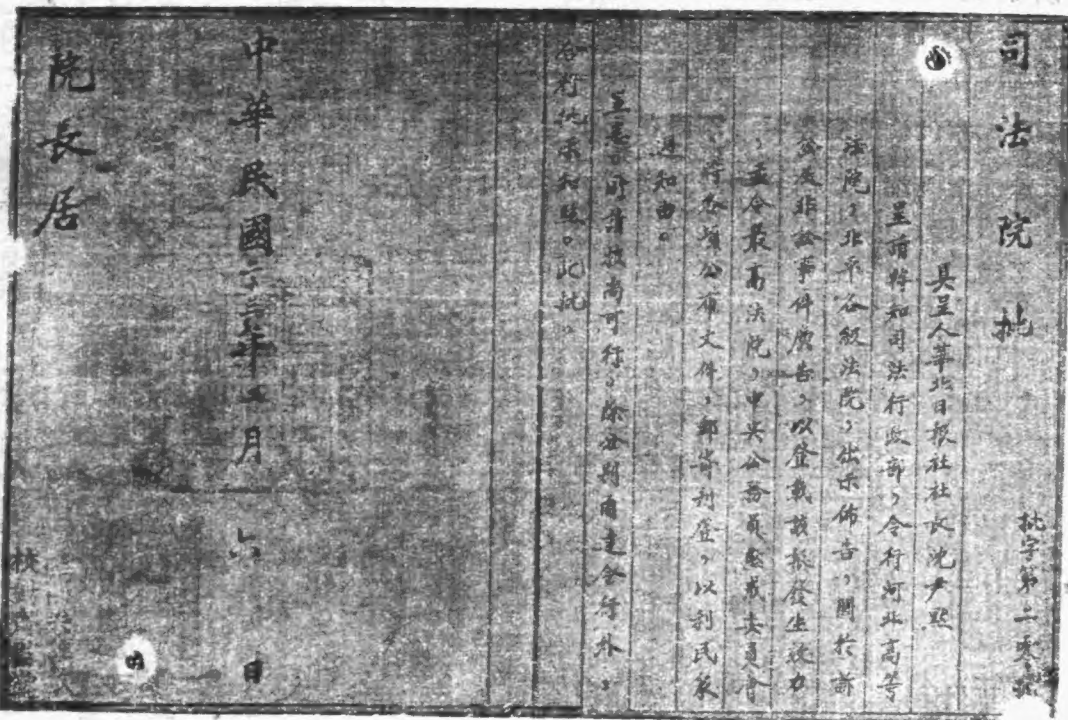 司法院批
批字第二零號
具呈人華北日報社社長沈尹默
呈請轉知司法行政部，令行河北高等
法院，北平各級法院，出示佈告，關於訴
訟及非訟事件廣告，以登載該報發生效力
，並令最高法院，中央公務員懲戒委員會
，將各項公布文件，郵寄刊登，以利民衆
週知由。
呈悉。所請核尚可行，除分別函達令行外，
合行批示知照。此批。
中華民國二十 年 月六日
院長居
校